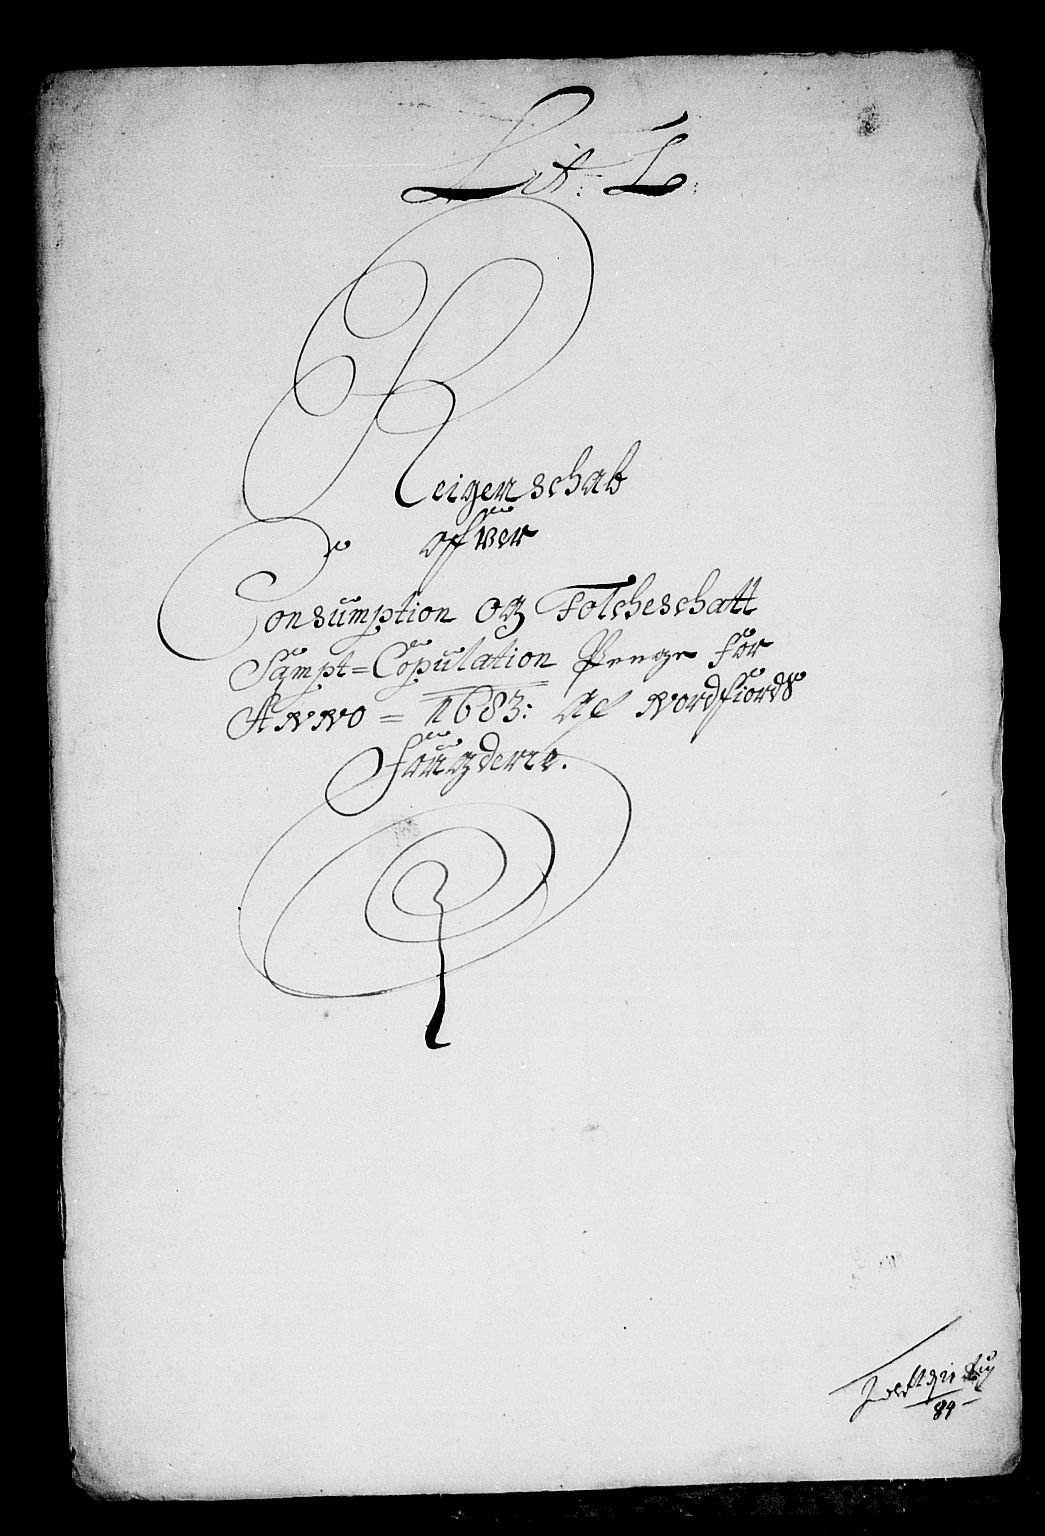 Lit: L:
Reigenschab
offver
Consumption og Folcheschatt
Sampt= Copulation Penge for
Anno = 1683: Af Nordfiords
Fougderie.
84